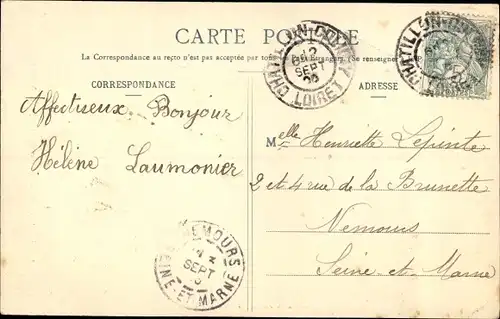 CARTE POSTALE
La Correspondance au recto n'est pas acceptée par tous
(Se renseigner
CORRESPONDANCE
ADRESSE
Affectueux Bonjour
Hélène Laumonier
Melle Henriette Lepinte
2 et 4 rue de la Brunette
Nemours
Seine-et-Marne
CHATILLON-COLIGNY
12
SEPT
LOIRET
CHATILLON-COLIGNY
LOIRET
NEMOURS
SEPT
SEINE-ET-MARNE